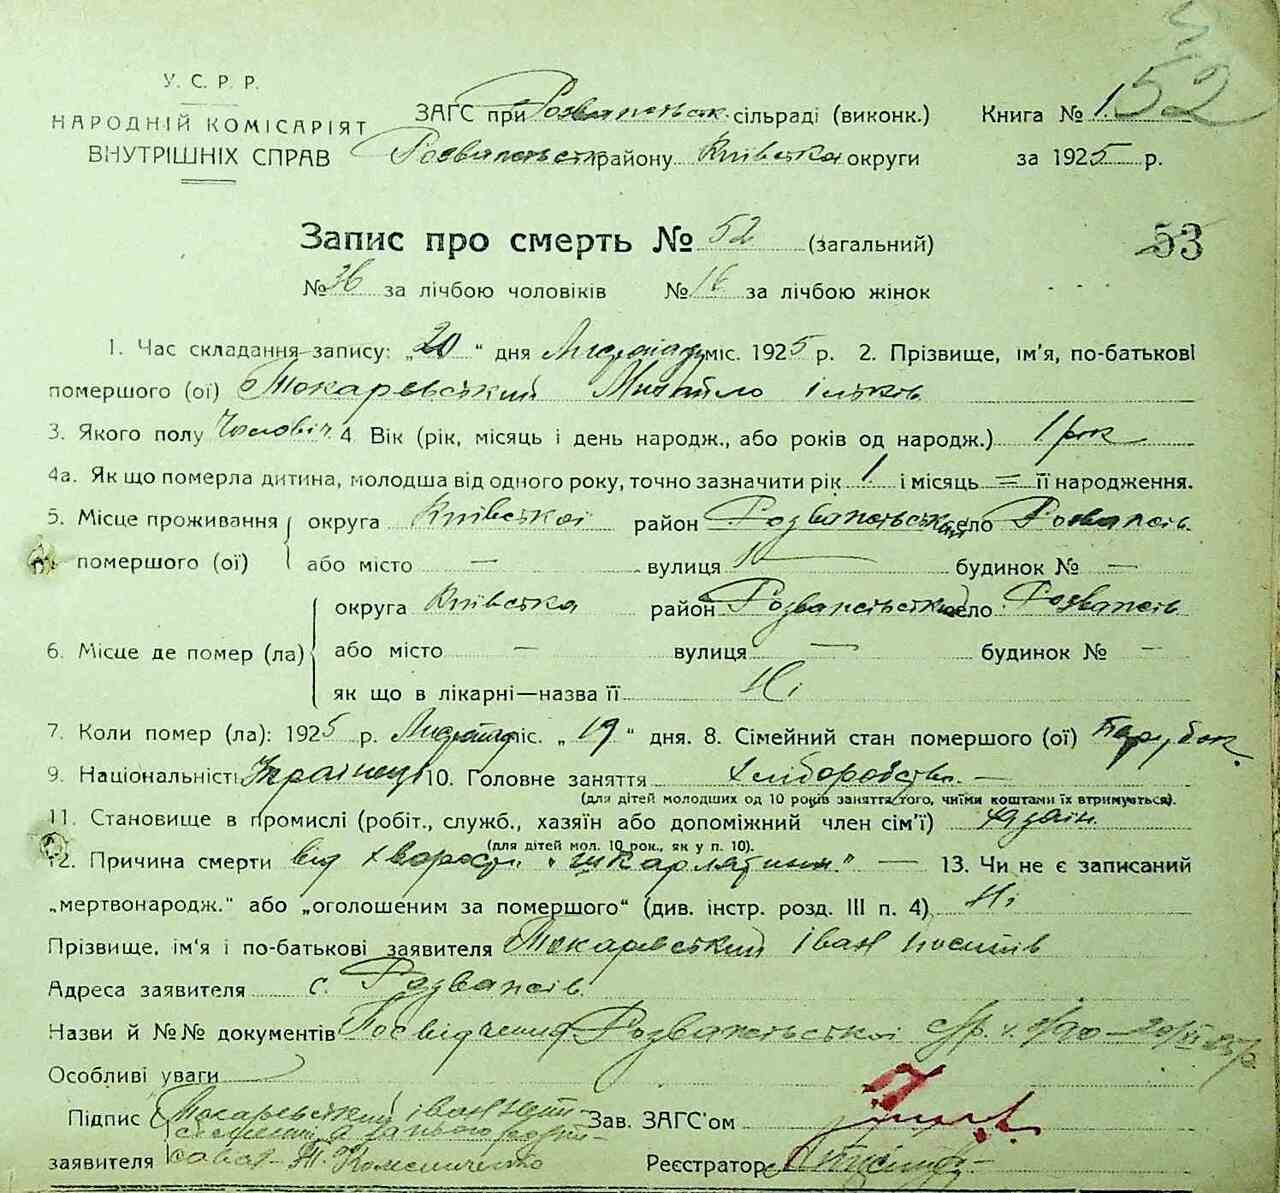 52
У. С. Р. Р.
НАРОДНІЙ КОМІСАРІЯТ
ВНУТРІШНІХ СПРАВ
ЗАГС при Розважевськ. сільраді (виконк.)
Розважевськ району Київська округи
Книга № 1
за 1925 р.
Запис про смерть № 52 (загальний)
53
№ 36 за лічбою чоловіків № 16 за лічбою жінок
1. Час складання запису: „20" дня міс. 1925 р. 2. Прізвище, ім'я, по-батькові
помершого (ої) Токаревський Михайло
3. Якого полу Чоловіч. 4 Вік (рік, місяць і день народж., або років од народж.) 1 рок
4а. Як що померла дитина, молодша від одного року, точно зазначити рік 1 і місяць = її народження.
5. Місце проживання помершого (ої) округа Київської район село Розважів.
або місто — вулиця будинок № —
6. Місце де помер (ла) округа Київська район село Розважів
або місто — вулиця — будинок № —
як що в лікарні—назва її Ні
7. Коли помер (ла): 1925 р. міс. „19" дня. 8. Сімейний стан помершого (ої) Парубок.
9. Національність Українець 10. Головне заняття Хліборобство. —
(для дітей молодших од 10 років заняття того, чиїми коштами їх втримується).
11. Становище в промислі (робіт., служб., хазяїн або допоміжний член сім'ї) хазяін.
(для дітей мол. 10 рок., як у п. 10).
12. Причина смерти від хворости „шкарлятини" — 13. Чи не є записаний
„мертвонародж." або „оголошеним за помершого" (див. інстр. розд. III п. 4) Ні
Прізвище, ім'я і по-батькові заявителя Токаревський Іван
Адреса заявителя с. Розважів.
Назви й №№ документів Посвідчення Розважевської
Особливі уваги
Підпис Токаревський Іван Зав. ЗАГС'ом
заявителя Реєстратор